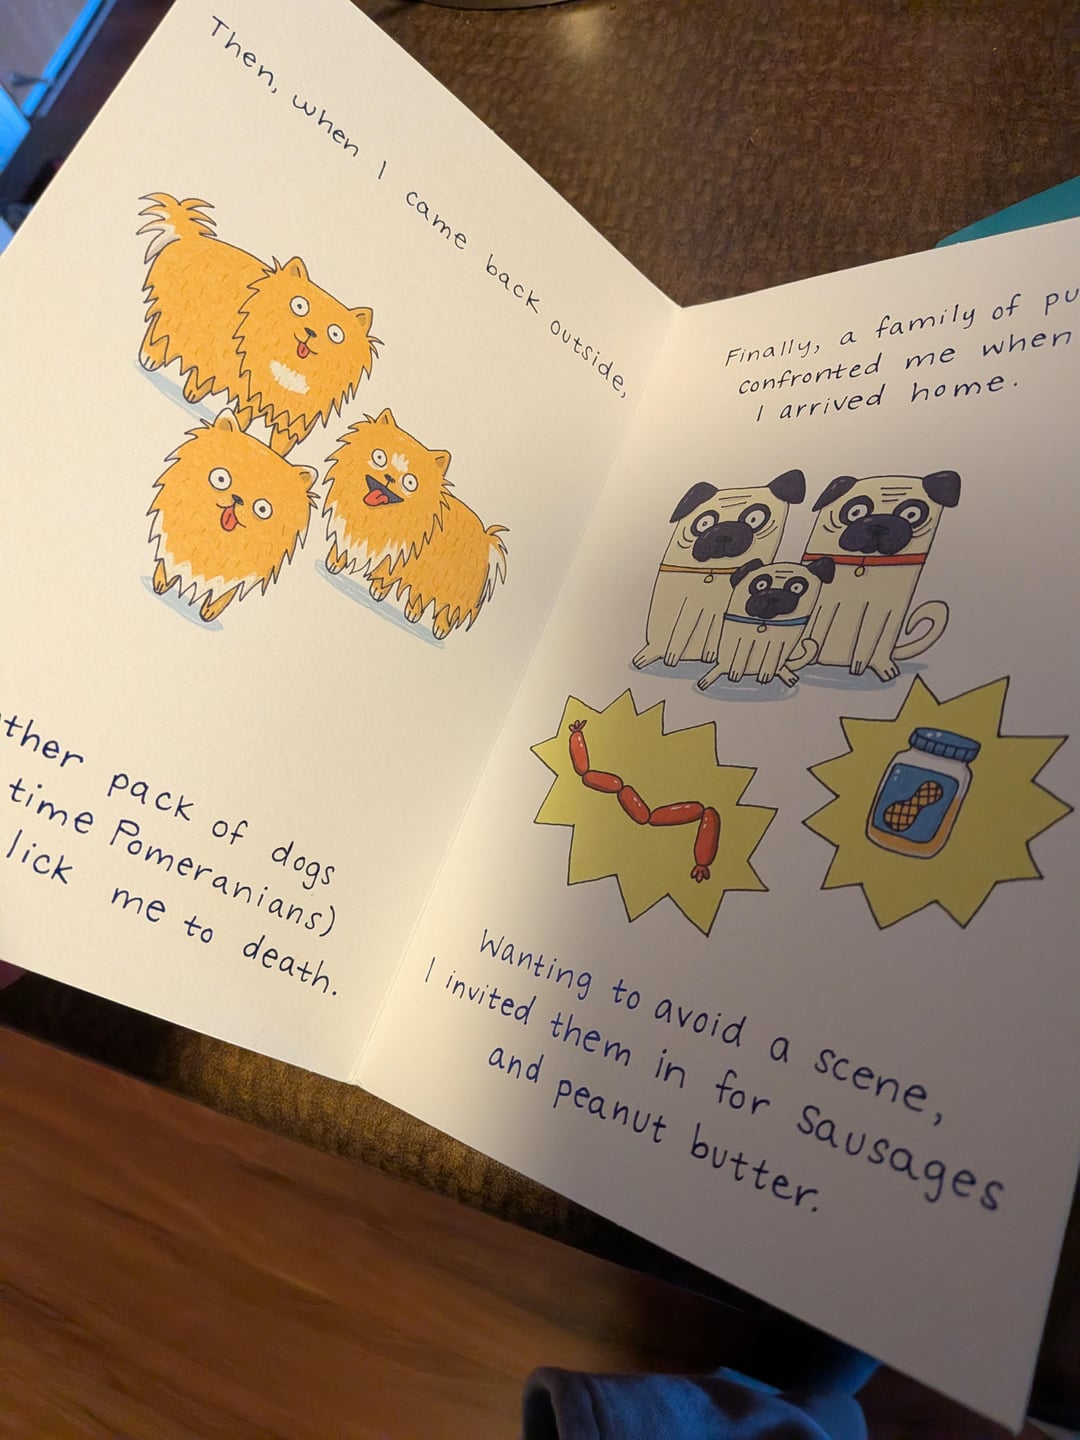 Then, when I came back outside,
ther pack of dogs
time Pomeranians)
lick me to death.
Finally, a family of pu
confronted me when
I arrived home.
Wanting to avoid a scene,
I invited them in for sausages
and peanut butter.